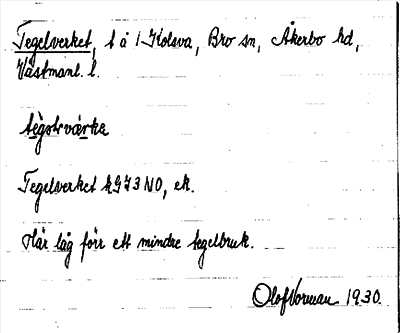 Tegelverket, t å 1 Kolsva, Bro sn, Åkerbo hd,
Västmanl. l.
tègəlvæ̀rkə
Tegelverket k 973 NO, ek.
Här låg förr ett mindre tegelbruk.
Olof Norman 1930.